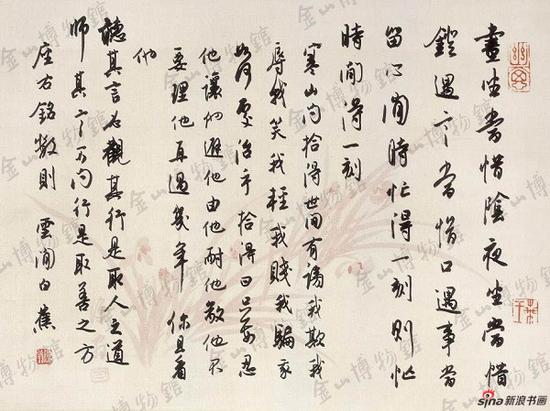 晝坐當惜陰夜坐當惜
鐙遇言當惜口遇事當
留心閒時忙得一刻則忙
時閒得一刻
寒山問拾得世間有謗我欺我
辱我笑我輕我賤我騙我
如何處治乎拾得曰只要忍
他讓他避他由他耐他敬他不
要理他再過幾年你且看
他
聽其言必觀其行是取人之道
師其言不問行是取善之方
座右銘數則 雲間白蕉
金山博物館
sina新浪书画